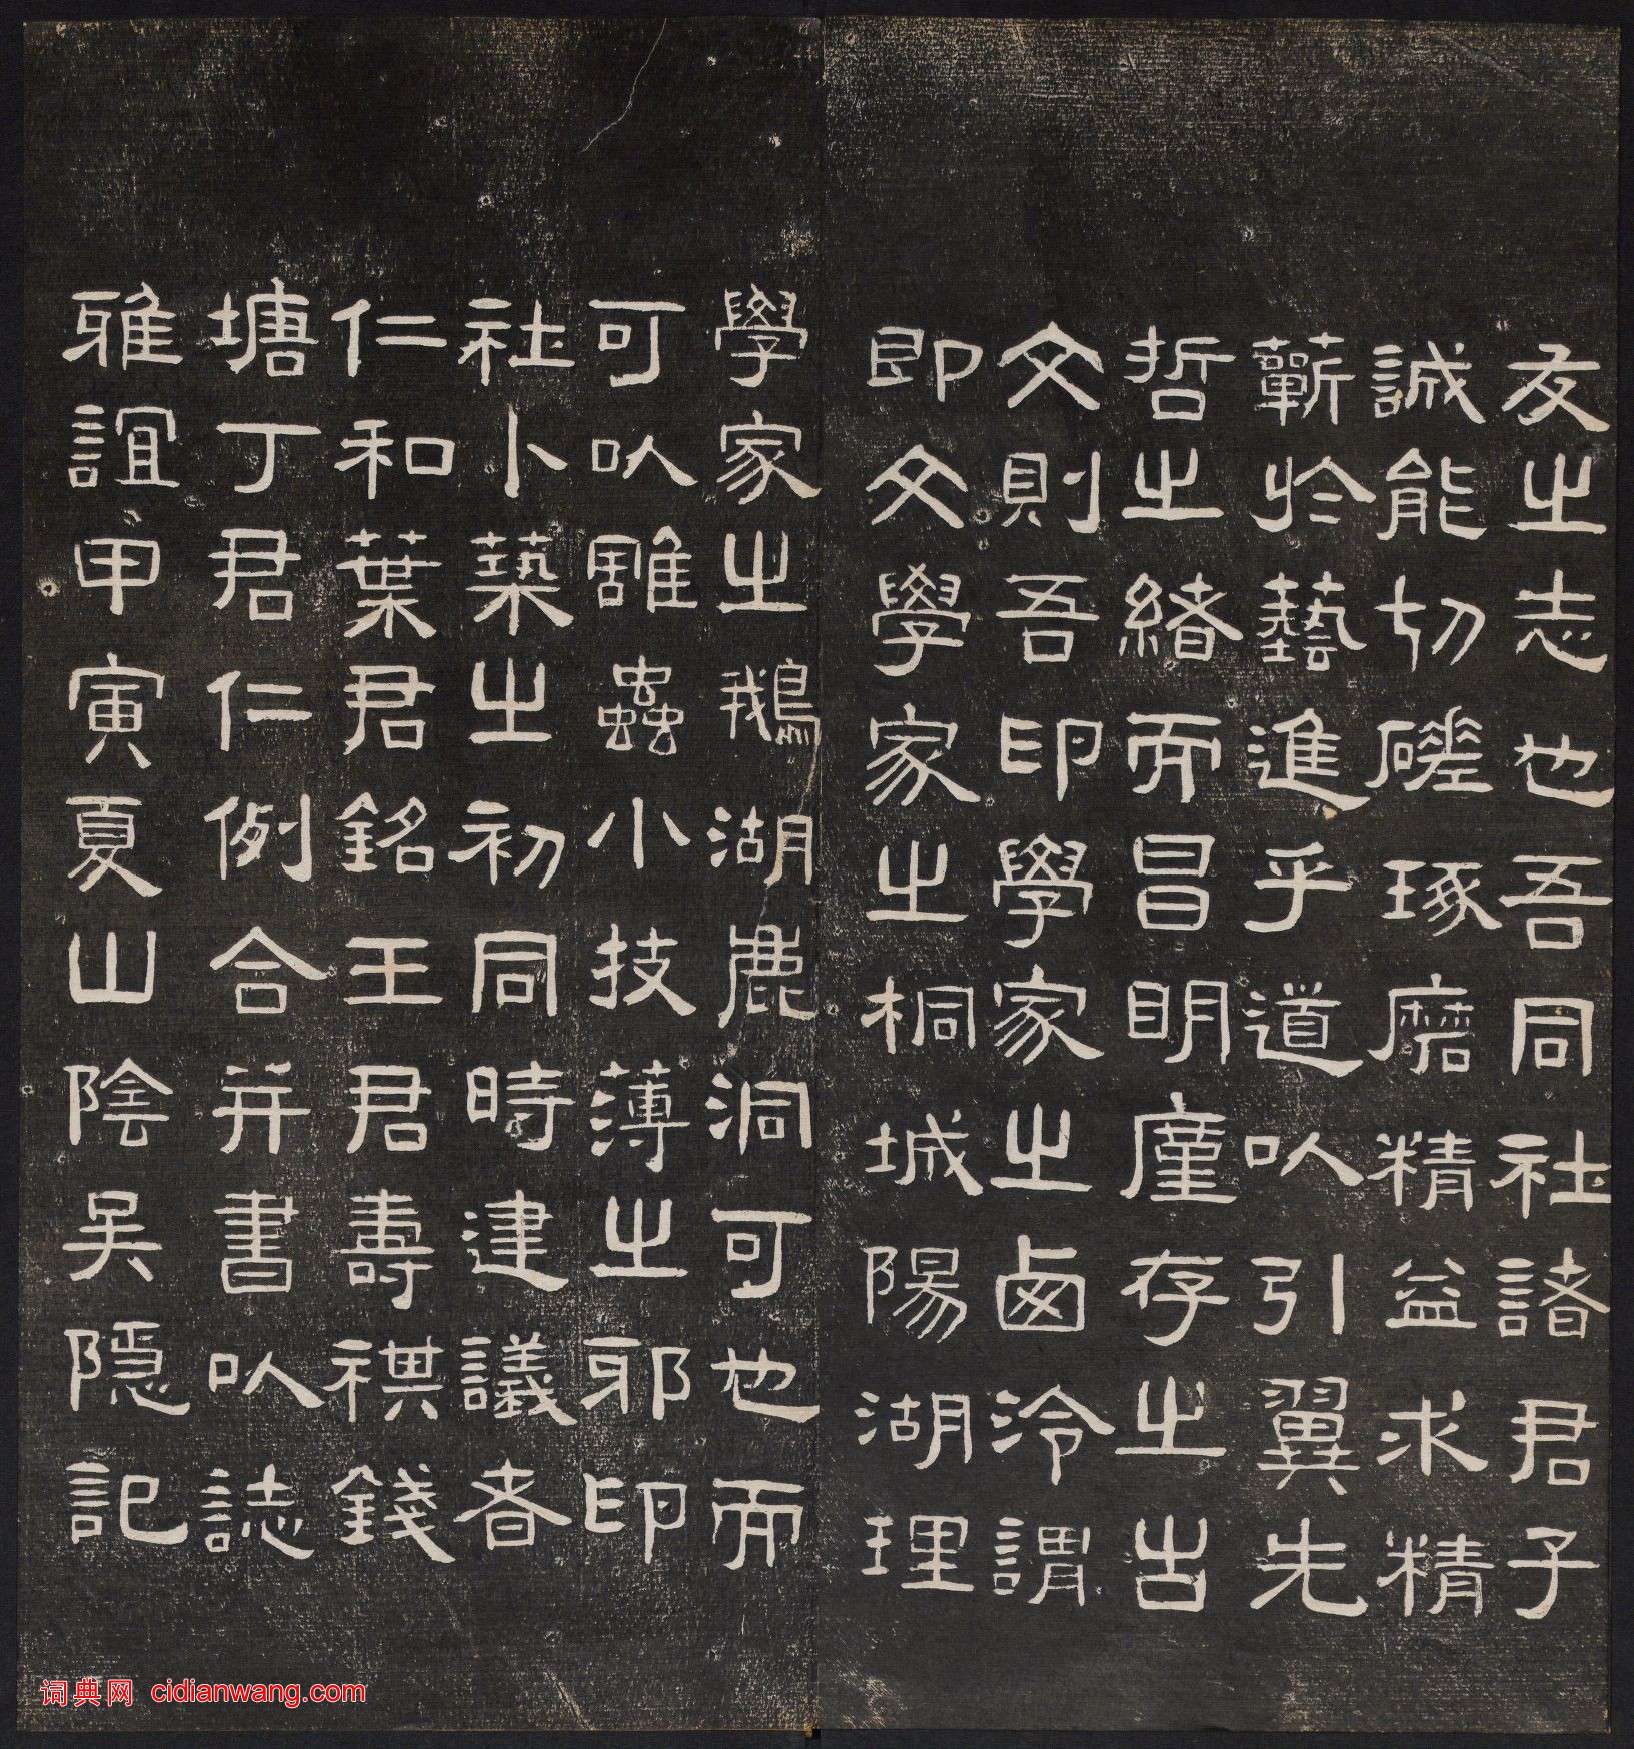 友之志也吾同社諸君子
誠能切磋琢磨精益求精
蘄於藝進乎道以引翼先
哲之緒而昌明廑存之古
文則吾印學家之鹵泠謂
即文學家之桐城陽湖理
學家之鵝湖鹿洞可也而
可以雕蟲小技薄之邪印
社卜築之初同時建議者
仁和葉君銘王君壽祺錢
塘丁君仁仁例合并書以誌
雅誼甲寅夏山陰吴隱記
词典网 cidianwang.com